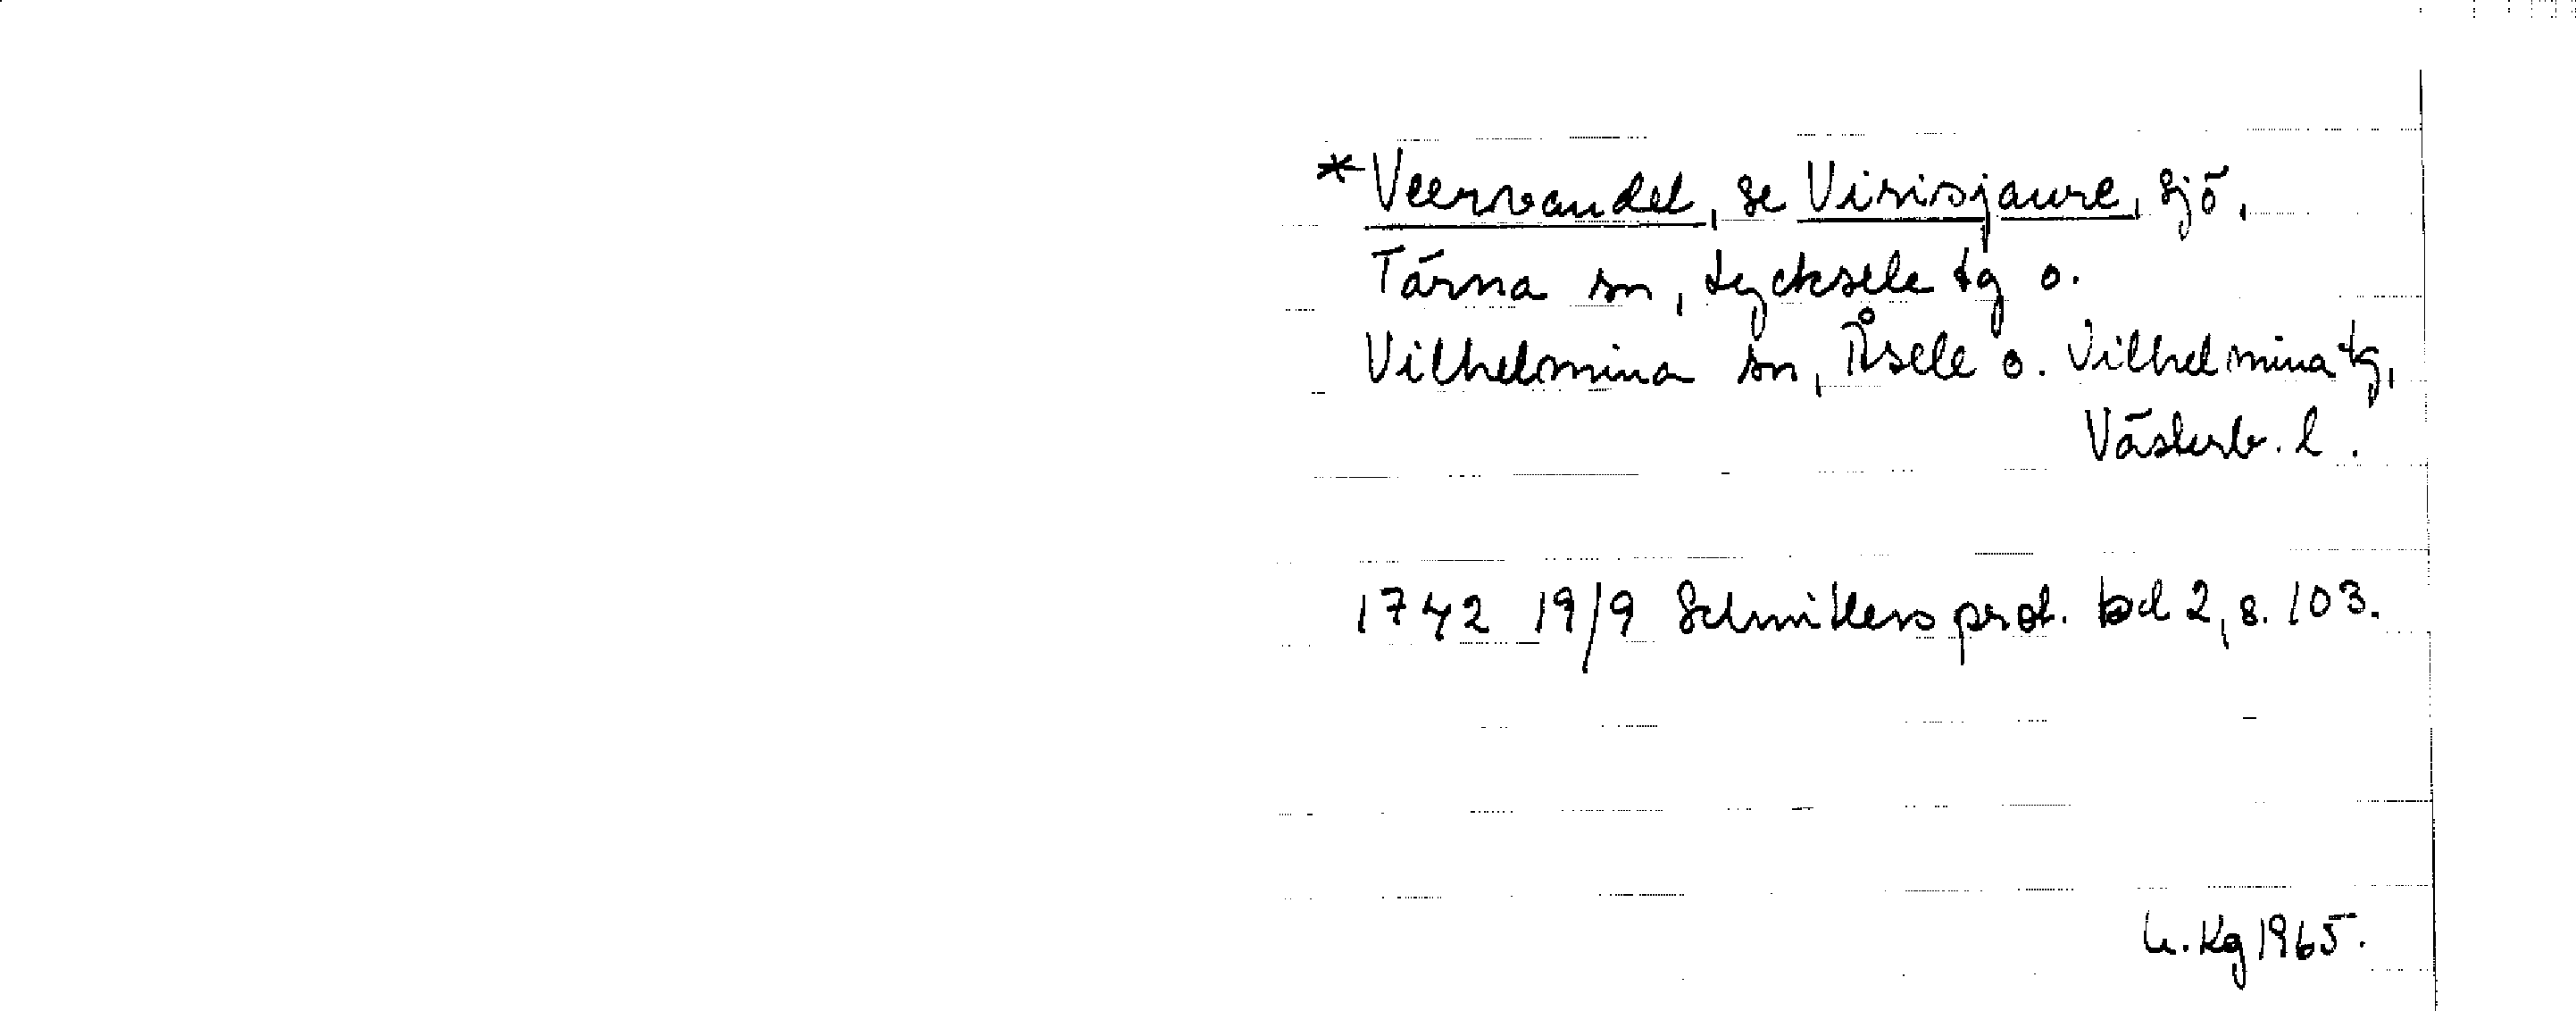 *Veervandel, se Virisjaure, sjö,
Tärna sn, Lycksele tg o.
Vilhelmina sn, Åsele o. Vilhelmina tg,
Västerb. l.
1742 19/9 Schnitlers prot. bd 2, s. 103.
U. Kg 1965.